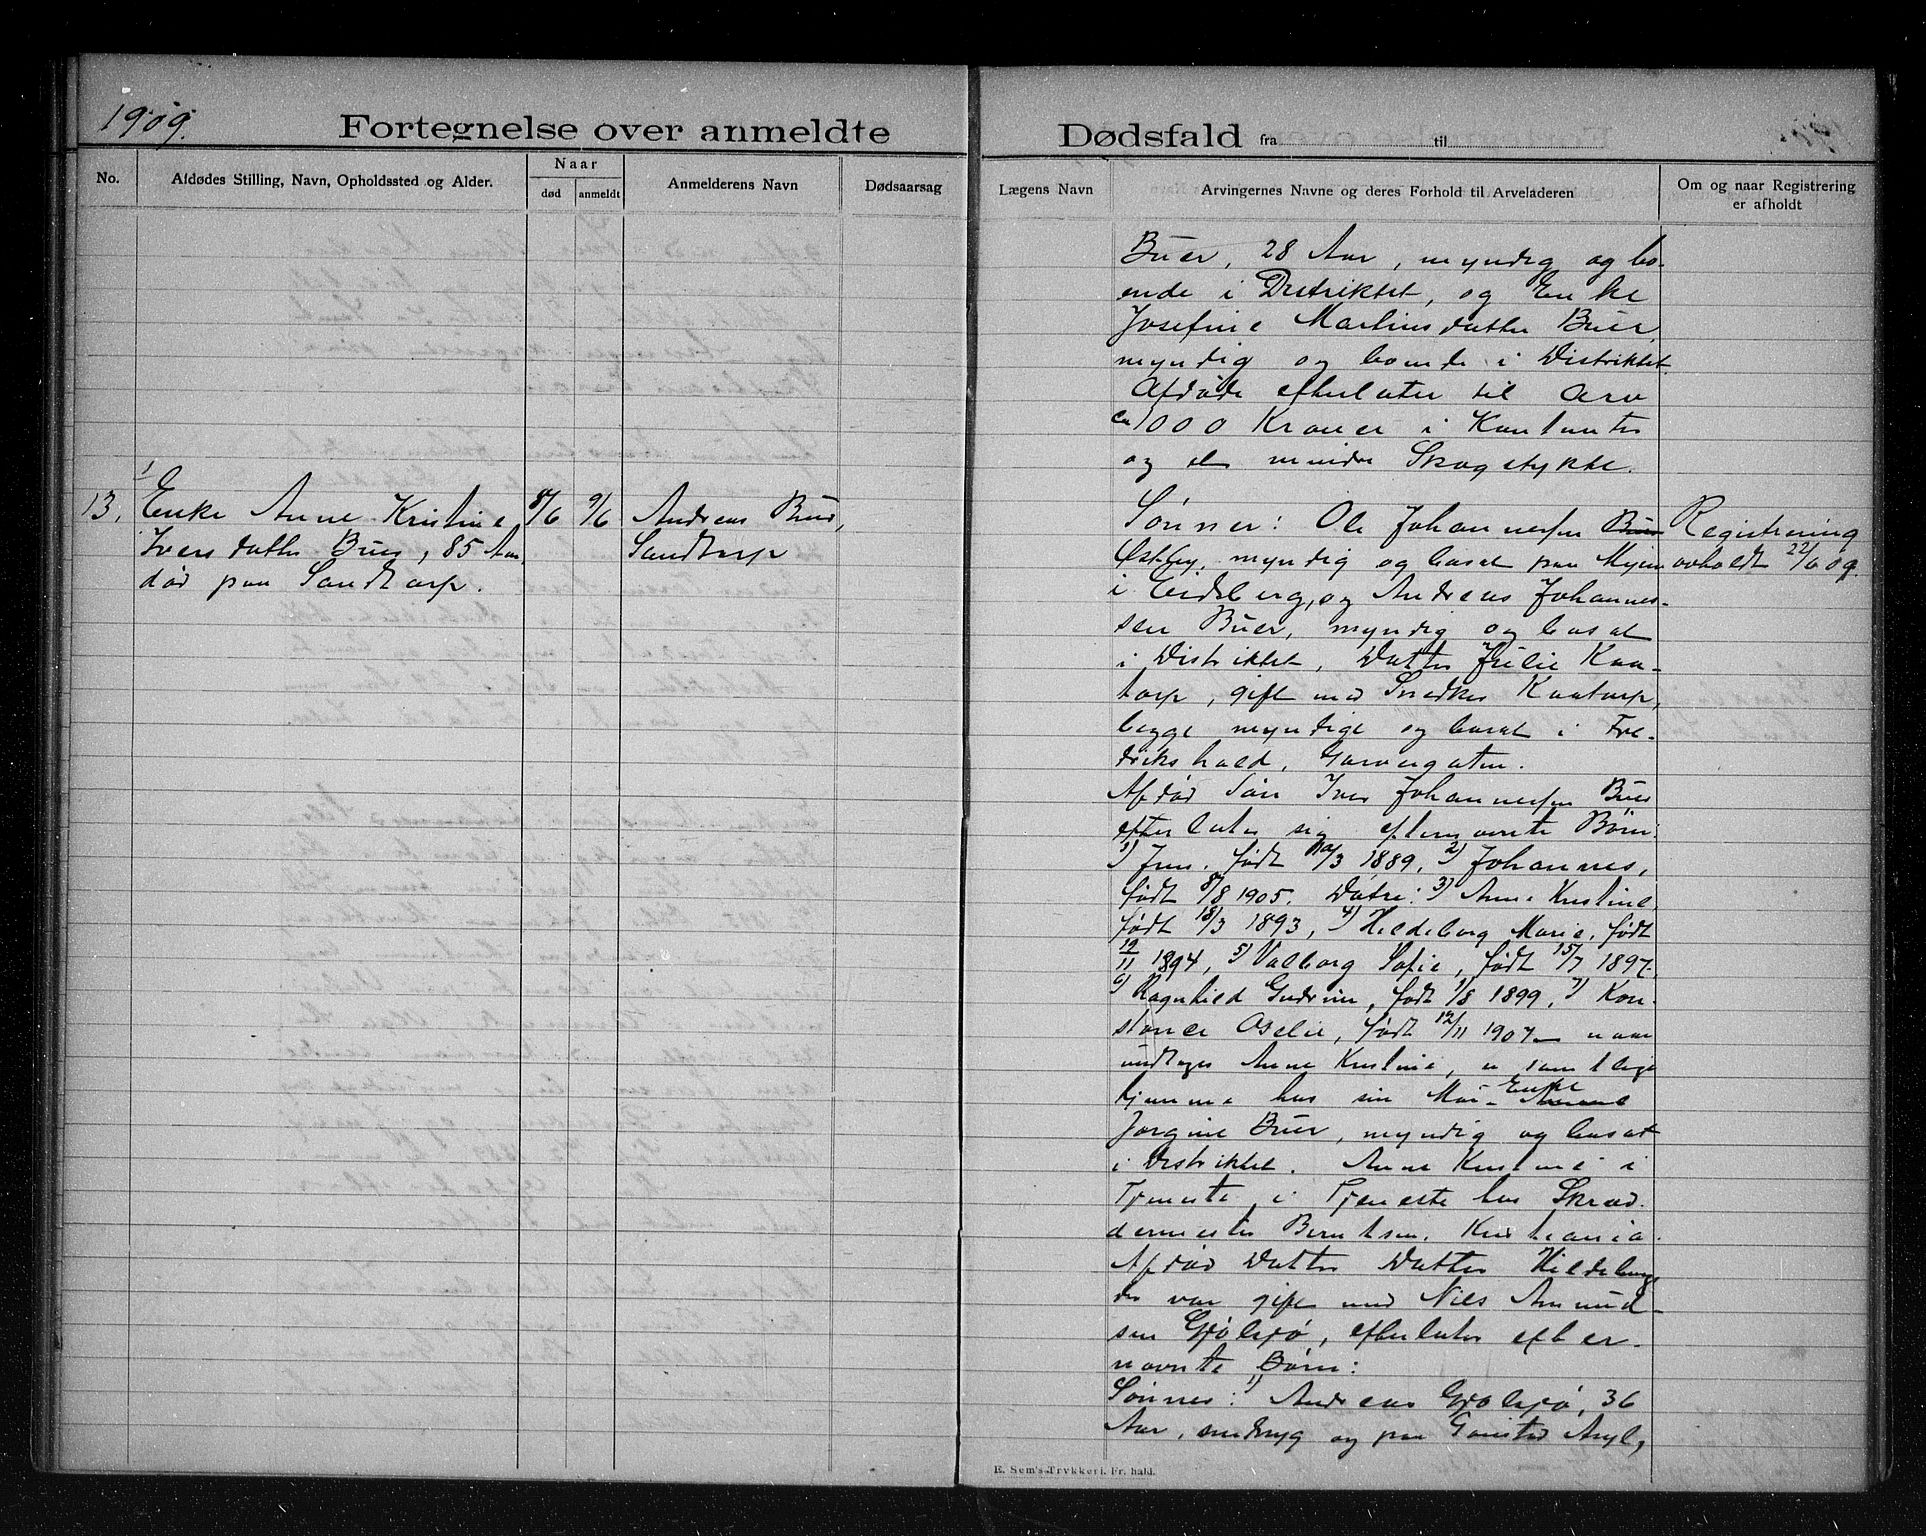 1909.
Fortegnelse over anmeldte Dødsfald fra til
No.
Afdødes Stilling, Navn, Opholdssted og Alder.
Naar
død
anmeldt
Anmelderens Navn
Dødsaarsag
Lægens Navn
Arvingernes Navne og deres Forhold til Arveladeren
Om og naar Registrering
er afholdt
Buer, 28 Aar, myndig og bo-
ende i Distriktet, og Enke
Josefine Martinsdatter Buer,
myndig og boende i Distriktet.
Afdøde efterlater til Arv
ca 1000 Kroner i Kontanter
og et mindre Skogstykke.
13.
1) Enke Anne Kristine
Iversdatter Buer, 85 Aar,
død paa Sandtorp.
8/6
9/6
Andreas Buer,
Sandtorp
Sønner: Ole Johannesen Buer
Østby, myndig og bosat paa Mysen
i Eidsberg, og Andreas Johannes-
sen Buer, myndig og bosat
i Distriktet, Datter Julie Kaa-
torp, gift med Snedker Kaatorp,
begge myndige og bosat i Fre-
drikshald, Garvergaten.
Afdød Søn Iver Johannesen Buer
efterlater sig efternævnte Børn:
1) Jens, født 10/3 1889, 2) Johannes,
født 8/8 1905. Døtre: 3) Anne Kristine,
født 18/3 1893, 4) Hildeborg Marie, født
19/11 1894, 5) Valborg Sofie, født 15/7 1897,
6) Ragnhild Gudrun, født 1/8 1899, 7) Kon-
stance Oselie, født 12/11 1907 naar
undtages Anne Kristine, er samtlige
hjemme hos sin Mor Enke
Jorgine Buer, myndig og bosat
i Distriktet. Anne Kristine i
Tjeneste i Tjeneste hos Skræd-
dermester Berntsen, Kristiania.
Afdød Datter Datter Hildeborg
der var gift med Nils Amund-
sen Gjølsjø, efterlater efter-
nævnte Børn:
Sønner: 1) Andreas Gjølsjø, 36
Aar, myndig og paa Gaustad Asyl,
Registrering
avholdt 22/6 09.
E. Sem's Trykkeri. Fr. hald.